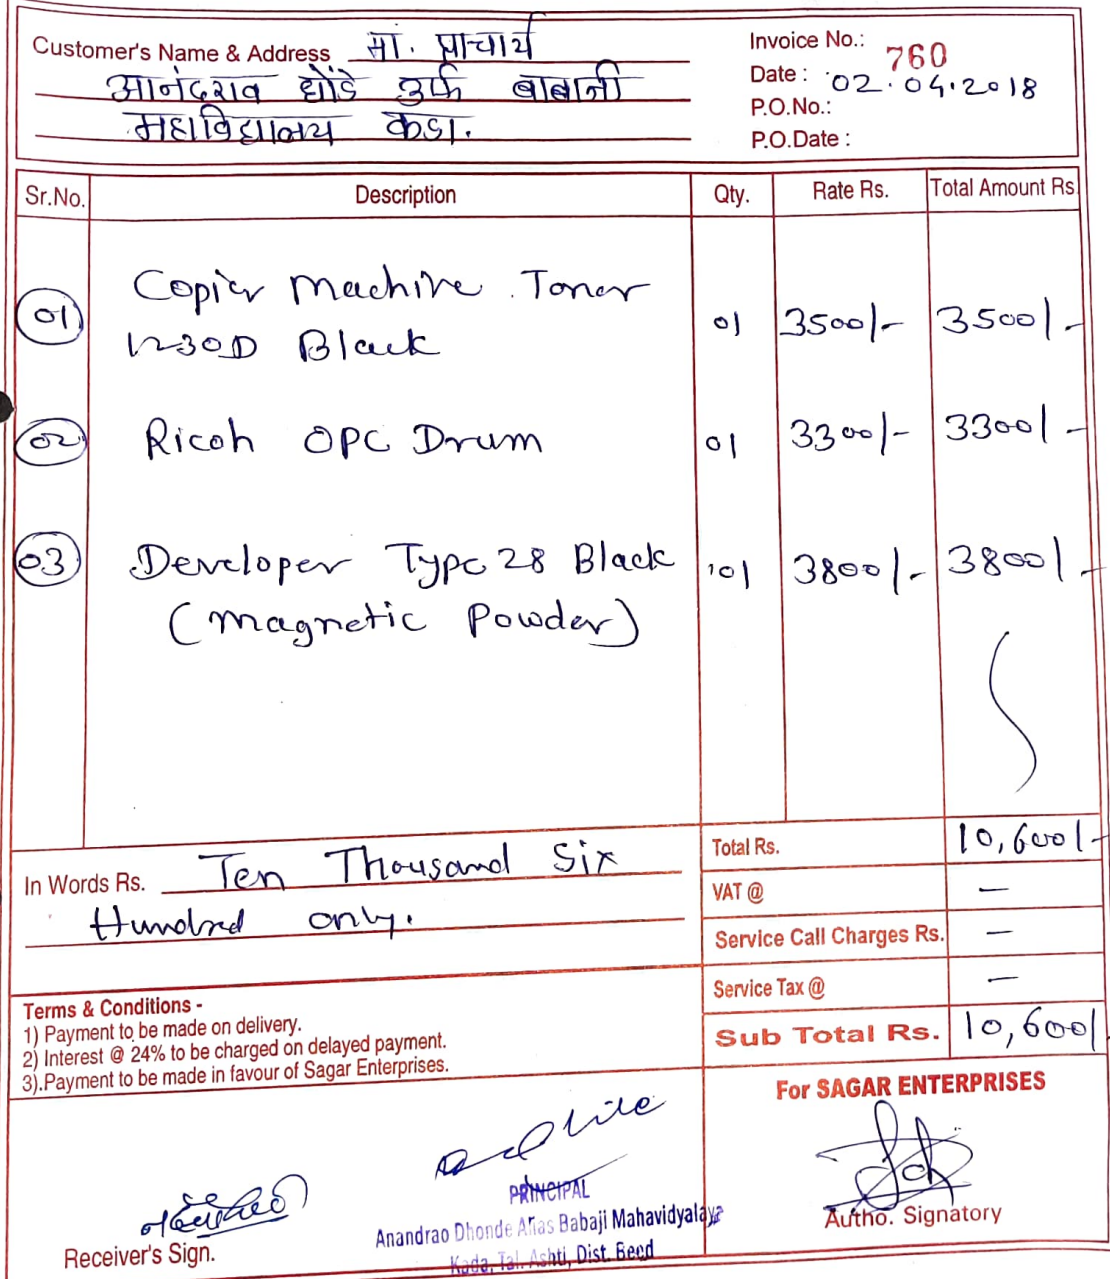 Customer's Name & Address मा. प्राचार्य
आनंदराव धोंडे उर्फ बाबाजी
महाविद्यालय कडा.
Invoice No.: 760
Date : 02.04.2018
P.O.No.:
P.O.Date :
Sr.No. Description Qty. Rate Rs. Total Amount Rs.
01 Copier Machine Toner
1230D Black 01 3500/- 3500/-
02 Ricoh OPC Drum 01 3300/- 3300/-
03 Developer Type 28 Black 01 3800/- 3800/-
(Magnetic Powder)
In Words Rs. Ten Thousand Six
Hundred only.
Total Rs. 10,600/-
VAT @ —
Service Call Charges Rs. —
Service Tax @ —
Sub Total Rs. 10,600/
Terms & Conditions -
1) Payment to be made on delivery.
2) Interest @ 24% to be charged on delayed payment.
3).Payment to be made in favour of Sagar Enterprises.
For SAGAR ENTERPRISES
PRINCIPAL
Anandrao Dhonde Alias Babaji Mahavidyalaya
Kada, Tal. Ashti, Dist. Beed
Receiver's Sign.
Autho. Signatory